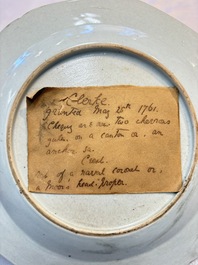 Clerke.
granted May 15th 1761.
Or two chevrons
gules. on a canton or. an
anchor sa.
Crest.
of a naval coronet or.
a Moor's head. proper.